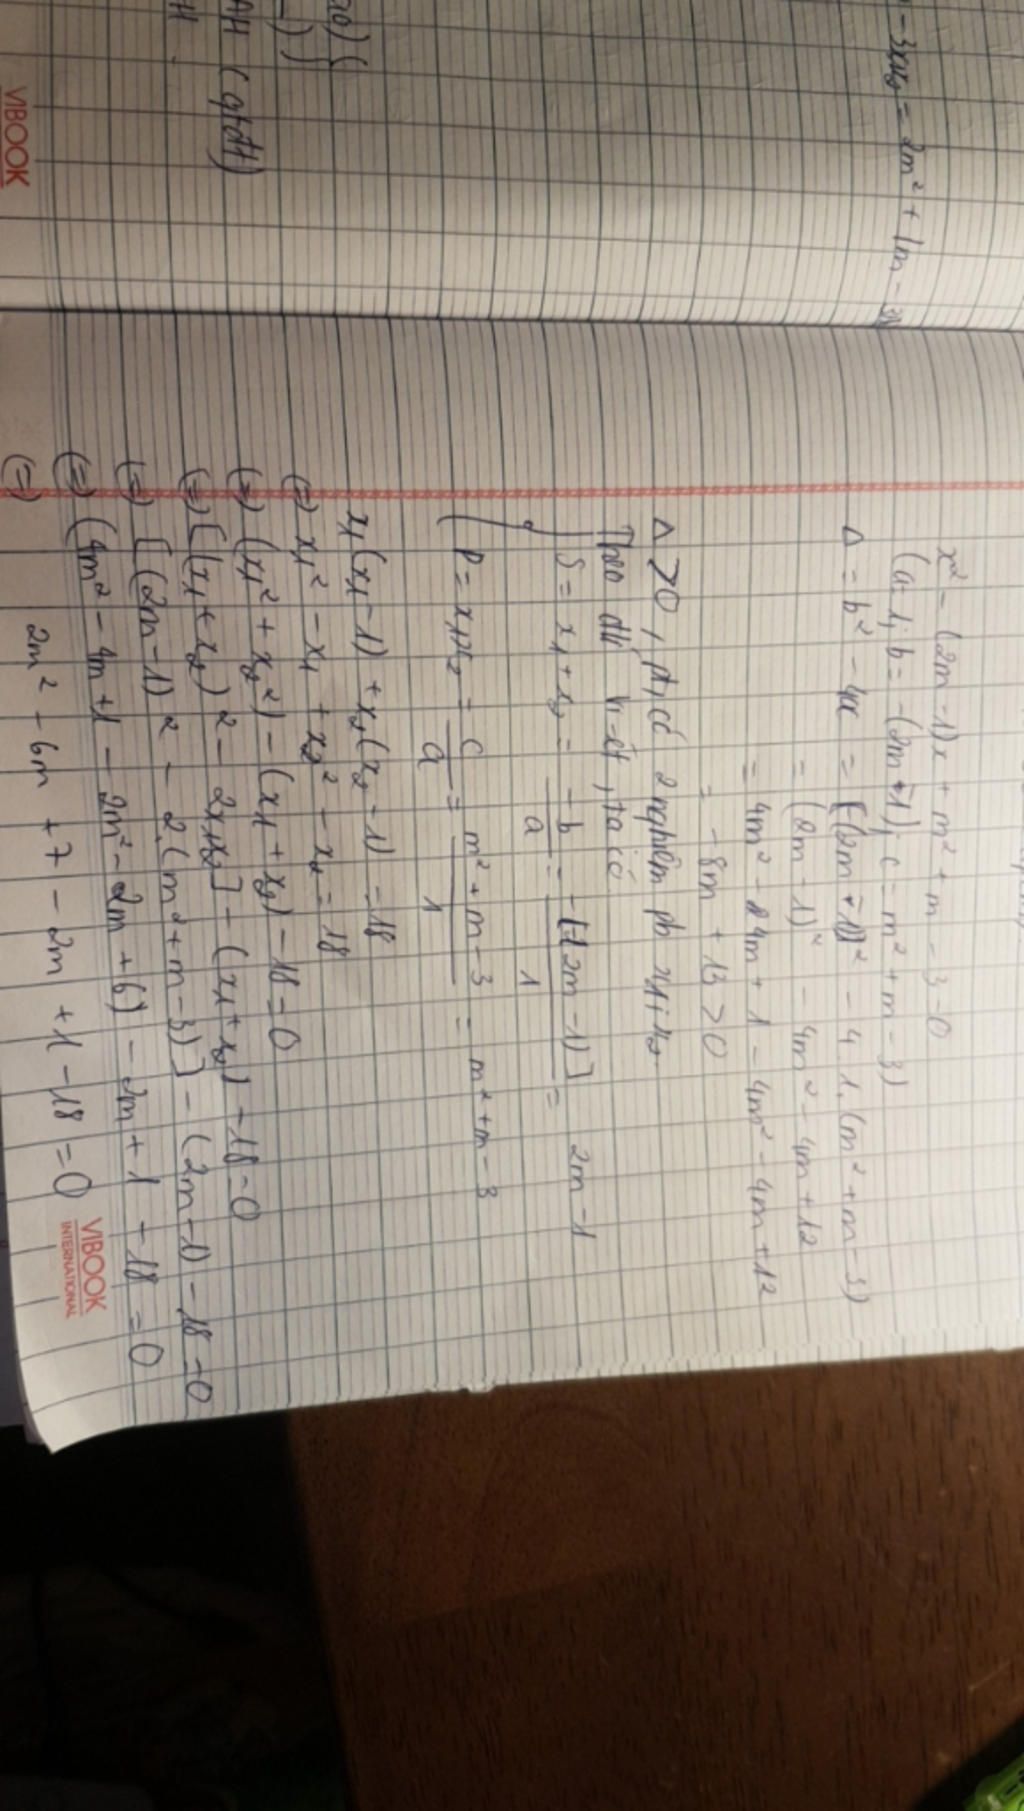 - 3x₁x₂ = 2m² + 1m - 3
AH (gtđt)
VIBOOK
x² - (2m - 1)x + m² + m - 3 = 0
(a = 1; b = -(2m - 1); c = m² + m - 3)
Δ = b² - 4ac = [-(2m - 1)]² - 4.1.(m² + m - 3)
= (2m - 1)² - 4m² - 4m + 12
= 4m² - 4m + 1 - 4m² - 4m + 12
= -8m + 13 > 0
Δ > 0, pt có 2 nghiệm pb x₁; x₂
Theo đlí Vi-ét, ta có
S = x₁ + x₂ = -b/a = -[-(2m - 1)]/1 = 2m - 1
P = x₁x₂ = c/a = m² + m - 3/1 = m² + m - 3
x₁(x₁ - 1) + x₂(x₂ - 1) = 18
(=) x₁² - x₁ + x₂² - x₂ = 18
(=) (x₁² + x₂²) - (x₁ + x₂) - 18 = 0
(=) [(x₁ + x₂)² - 2x₁x₂] - (x₁ + x₂) - 18 = 0
(=) [(2m - 1)² - 2.(m² + m - 3)] - (2m - 1) - 18 = 0
(=) (4m² - 4m + 1 - 2m² - 2m + 6) - 2m + 1 - 18 = 0
(=) 2m² - 6m + 7 - 2m + 1 - 18 = 0
VIBOOK
INTERNATIONAL